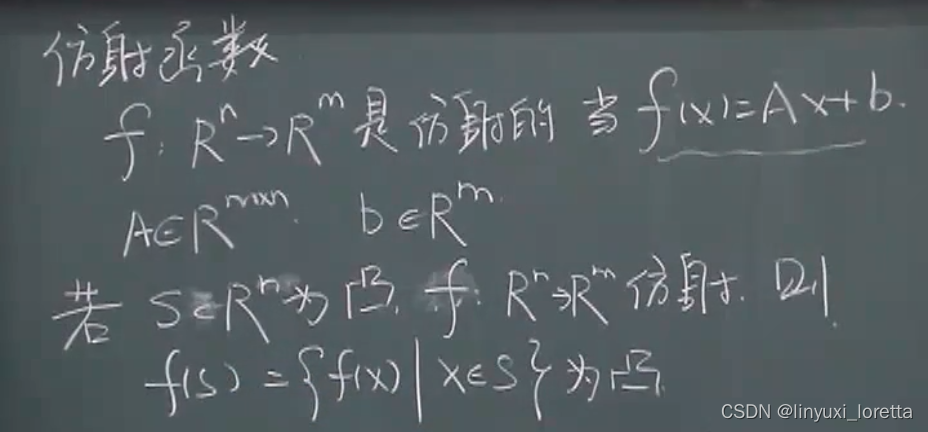 仿射函数
f: Rⁿ→Rᵐ 是仿射的 当 f(x)=Ax+b.
A∈Rᵐˣⁿ. b∈Rᵐ.
若 S∈Rⁿ为凸, f: Rⁿ→Rᵐ 仿射. 则.
f(S) = {f(x) | x∈S} 为凸.
CSDN @linyuxi_loretta